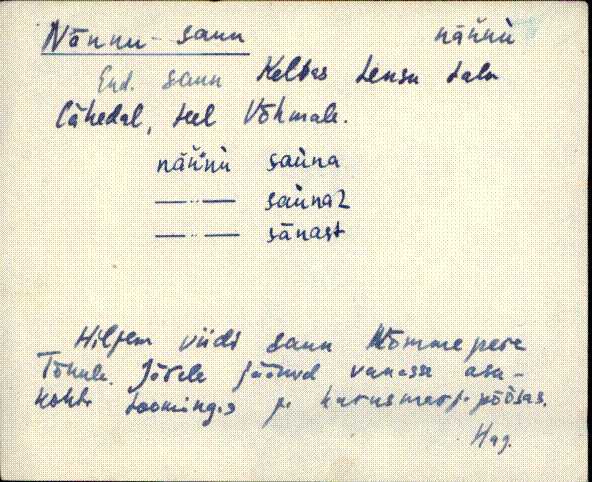 Nännu-saun näṅ̀nù
End. saun Kelbas Lensu talu
lähedal, teel Võhmale.
näṅ̀nù saùna
—〃— saùnaɁ
—〃— sānast
Hiljem viidi saun Nõmmepere
Tõnule. Järele jäänud vanasse asu-
kohta toomingas ja karusmarja-põõsas.
Hag.